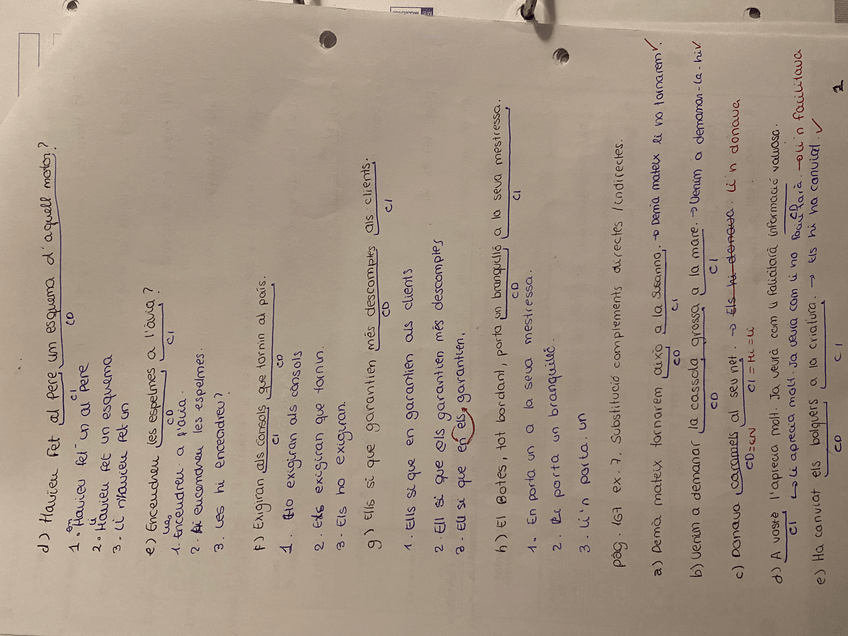 d) Havíeu fet al Pere un esquema d'aquell motor?
CI CD
1. Havíeu fet un al Pere
en
2. Havíeu fet un esquema
li
3. Li n'havíeu fet un
e) Encendreu les espelmes a l'àvia?
CD CI
les
1. Encendreu a l'àvia.
2. Li encendreu les espelmes.
3. Les hi encendreu?
f) Exigiran als cònsols que tornin al país.
CI CD
1. Ho exigiran als cònsols
2. Els exigiran que tornin.
3. Els ho exigiran.
g) Ells sí que garantien més descomptes als clients.
CD CI
1. Ells sí que en garantien als clients
2. Ell sí que els garantien més descomptes
3. Ell sí que en els garantien.
h) El Botes, tot bordant, porta un branquilló a la seva mestressa.
CD CI
1. En porta un a la seva mestressa.
2. Li porta un branquilló.
3. Li'n porta un
pàg. 167 ex. 7. Substitució complements directes / indirectes.
a) Demà mateix tornarem això a la Susanna. → Demà mateix li ho tornarem. ✓
CD CI
b) Venim a demanar la cassola grossa a la mare. → Venim a demanar-la-hi ✓
CD CI
c) Donava caramels al seu net. → Els hi donava. Li'n donava
CD=EN CI=Hi=li
d) A vostè l'aprecia molt. Ja veurà com li facilitarà informació valuosa.
CI CD
↳ Li aprecia molt. Ja veurà com li ho facilitarà. → li'n facilitava
e) Ha canviat els bolquers a la criatura. → Els hi ha canviat. ✓
CD CI
2